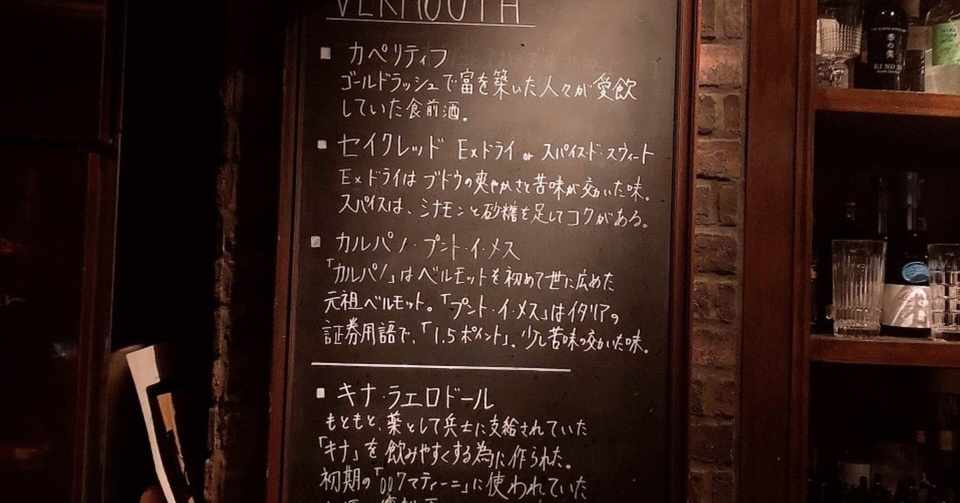 VERMOUTH
■ カペリティフ
ゴールドラッシュで富を築いた人々が愛飲
していた食前酒。
■ セイクレッド Exドライ or スパイスド・スウィート
Exドライはブドウの爽やかさと苦味が効いた味。
スパイスは、シナモンと砂糖を足してコクがある。
■ カルパノ・プント・イ・メス
「カルパノ」はベルモットを初めて世に広めた
元祖ベルモット。「プント・イ・メス」はイタリアの
証券用語で、「1.5ポイント」。少し苦味の効いた味。
■ キナ・ラエロドール
もともと、薬として兵士に支給されていた
「キナ」を飲みやすくする為に作られた。
初期の「007マティーニ」に使われていた
季の美
KI NO BI